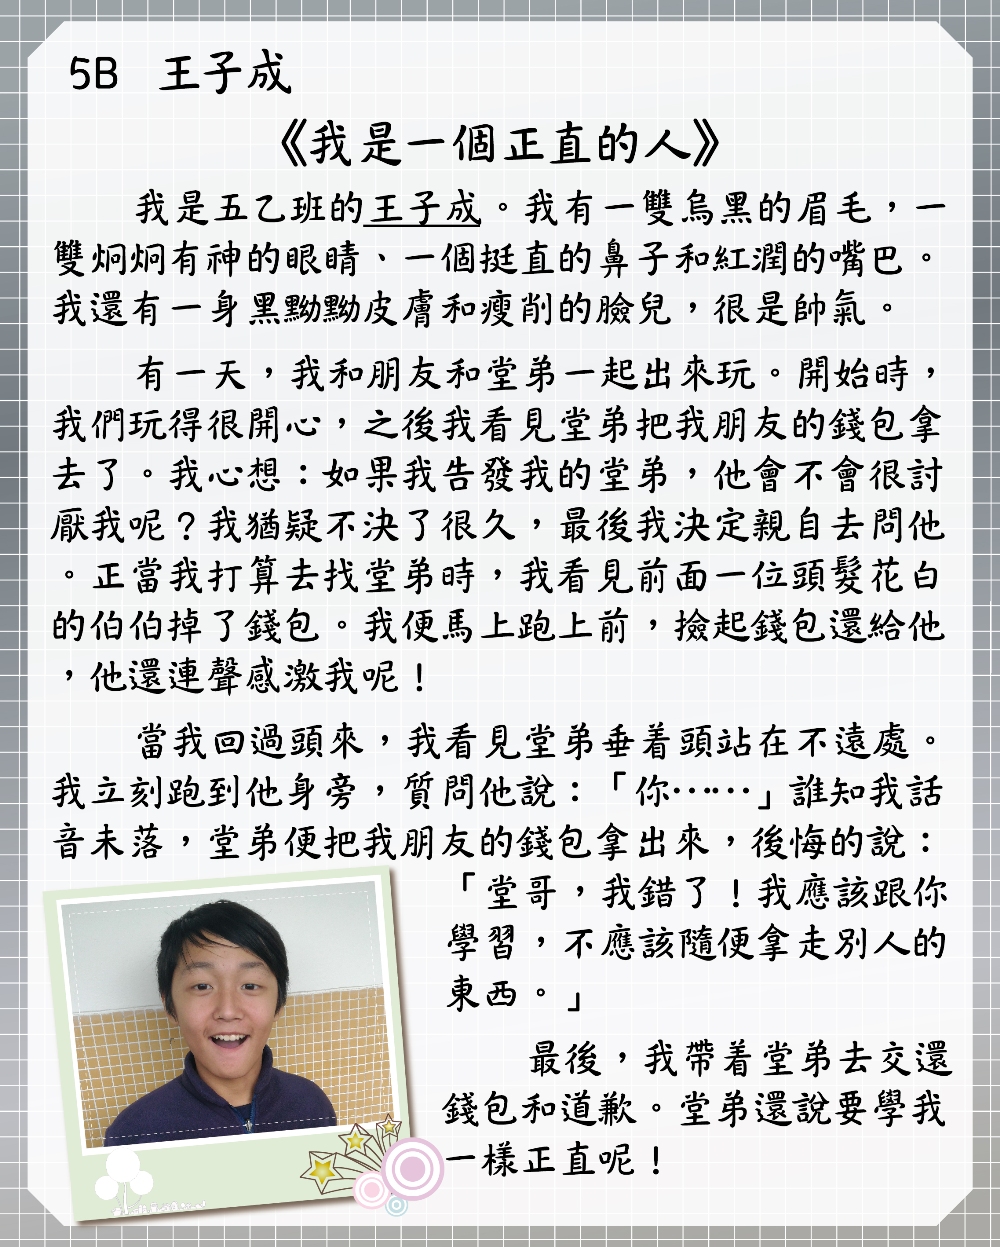 5B 王子成
《我是一個正直的人》
我是五乙班的王子成。我有一雙烏黑的眉毛，一
雙炯炯有神的眼睛、一個挺直的鼻子和紅潤的嘴巴。
我還有一身黑黝黝皮膚和瘦削的臉兒，很是帥氣。
有一天，我和朋友和堂弟一起出來玩。開始時，
我們玩得很開心，之後我看見堂弟把我朋友的錢包拿
去了。我心想：如果我告發我的堂弟，他會不會很討
厭我呢？我猶疑不決了很久，最後我決定親自去問他
。正當我打算去找堂弟時，我看見前面一位頭髮花白
的伯伯掉了錢包。我便馬上跑上前，撿起錢包還給他
，他還連聲感激我呢！
當我回過頭來，我看見堂弟垂着頭站在不遠處。
我立刻跑到他身旁，質問他說：「你……」誰知我話
音未落，堂弟便把我朋友的錢包拿出來，後悔的說：
「堂哥，我錯了！我應該跟你
學習，不應該隨便拿走別人的
東西。」
最後，我帶着堂弟去交還
錢包和道歉。堂弟還說要學我
一樣正直呢！